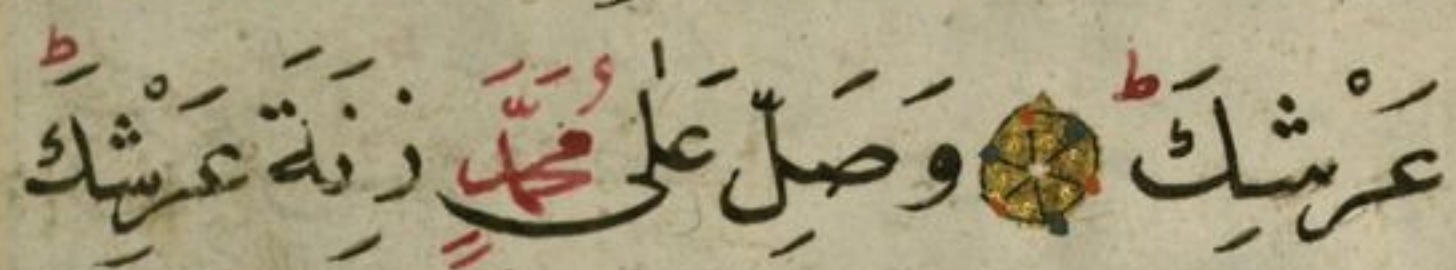 عَرْشِكَ ط وَصَلِّ عَلٰى مُحَمَّدٍ زِنَةَ عَرْشِكَ ط